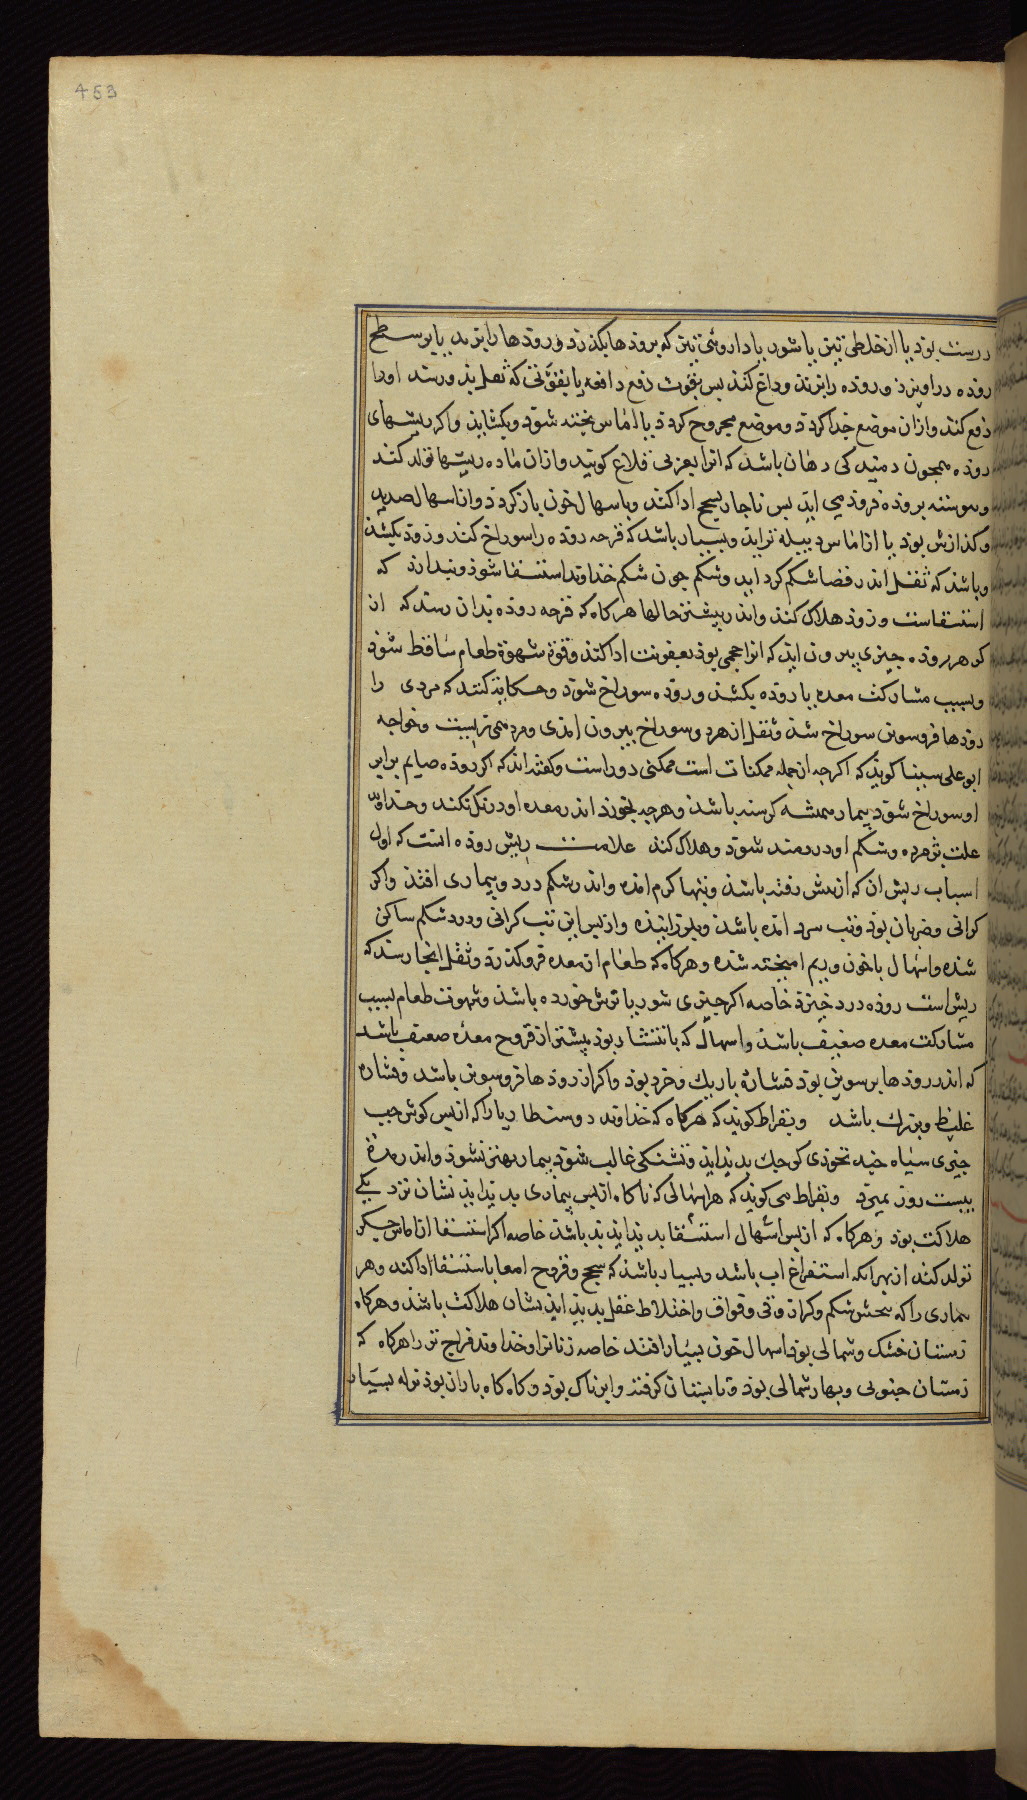 453
درست بوذ یا از خلطی تیز یا شور یا داروئی تیز که بروذها بکذرذ و روذها را برند یا بر سطح
روذه دراویزذ و روذه را برند و داغ کنذ بس بقوت دفع دافعه یا بقوتی که ثفل بذو رسد اورا
دفع کند و ازان موضع جذا کردد و موضع مجروح کردد یا اماس بخته شوذ و بکشایذ و اکر ریشهای
روذه همجون دمیدکی دهان باشذ که انرا بعربی قلاع کویند و ازان ماده ریشها تولد کند
و بیوسته بروذه فروذ می ایذ بس ناجار بسحج ادا کند و باسهال خون باز کردد و اناسهال صدید
و کذازش بوذ یا از اماس دبیله برایذ و بسیار باشد که قرحه روذه را سوراخ کند و زوذ بکشذ
و باشذ که ثفل اندر فضا شکم کرد ایذ و شکم جون شکم خذاوند استسقا شوذ و بندارذ که
استسقاست و زوذ هلاک کند و اندر بیشتر حالها هرکاه که قرحه روذه بدان رسد که از
کوهر روذه جیزی بیرون ایذ که انرا حجمی بوذ بعفونت ادا کند و قوة شهوة طعام ساقط شوذ
و بسبب مشارکت معده با روذه بکشذ و روذه سوراخ شوذ و حکایت کنند که مردی را
روذها فروسوین سوراخ شذ و ثفل از هردو سوراخ بیرون امذی و مرد می زیست و خواجه
ابوعلی سینا کویذ که اکرجه از جمله ممکنات است ممکنی دور است و کفته اند که اکر روذه صایم برابر
او سوراخ شوذ بیمار همیشه کرسنه باشذ و هرجه بخورذ اندر معده او درنکل نکند و خداوند
علت بژمرده و شکم او دردمند شوذ و هلاک کند علامت ریش روذه انست که اول
اسباب ریش ان که از بیش رفته باشذ و تبها کرم امذه و اندر شکم درد و بیماری افتذ و اکر
کرانی و ضربان بوذ و تب سرد امذه باشذ و بلرزانیذه و از بس این تب کرانی و درد شکم ساکن
شذه و اسهال با خون و ریم امیخته شذه و هرکاه که طعام از معده فروکذرذ و ثفل انجا رسد که
ریش است روذه درد خیزذ خاصه اکر جیزی شور یا ترش خورده باشذ و شهوت طعام بسبب
مشارکت معده ضعیف باشذ و اسهال که با انتشار بوذ بیشتر از قروح معده ضعیف باشد
که اندر روذها برسوین بوذ قشاره باریک و خرد بوذ و اکر از روذها فروسوین باشد قشاره
غلیظ و بزرک باشد و بقراط کویذ که هرکاه که خذاوند دوسنطاریا را که از بس کوش جب
جیزی سیاه جند نخوذی کوجک بدید ایذ و تشنکی غالب شوذ بیمار بهتر نشوذ و اندر مدة
بیست روز بمیرذ و بقراط می کویذ که هر اسهالی که ناکاه از بس بیماری بدید ایذ نشان نزد یکی
هلاکت بوذ و هرکاه که از بس اسهال استسقا بدید ایذ بد باشذ خاصه اکر استسقا از اماس جیکر
تولد کند از بهر انکه استفراغ اب باشد و بسیار باشذ که سحج و قروح امعا باستسقا ادا کند و هر
بیماری را که سحش شکم و کزاز و قی و فواق و اختلاط عقل بدید ایذ نشان هلاکت باشذ و هرکاه
زمستان خشک و شمالی بوذ اسهال خون بسیار افتد خاصه زنانرا و خذاوند مزاج تر را هرکاه که
زمستان جنوبی و بهار شمالی بوذ و تابستان کرفته و ابرناک بوذ و کاه کاه باران بوذ نزله بسیار